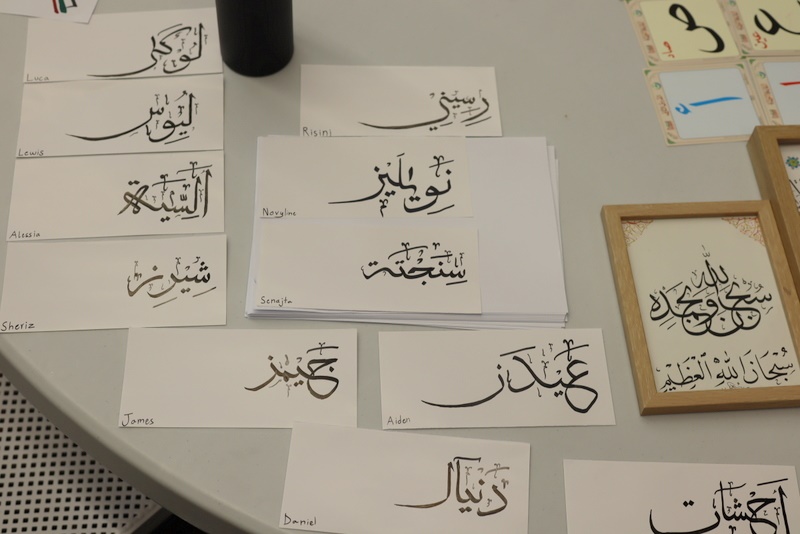 لوكا
Luca
ليوس
Lewis
Alessia
شيرز
Sheriz
رسيني
Risini
Novyline
سنجتة
Senajta
جيمز
James
عيدن
Aiden
دنيال
Daniel
سبحان الله وبحمده
سبحان الله العظيم
ص
صاد